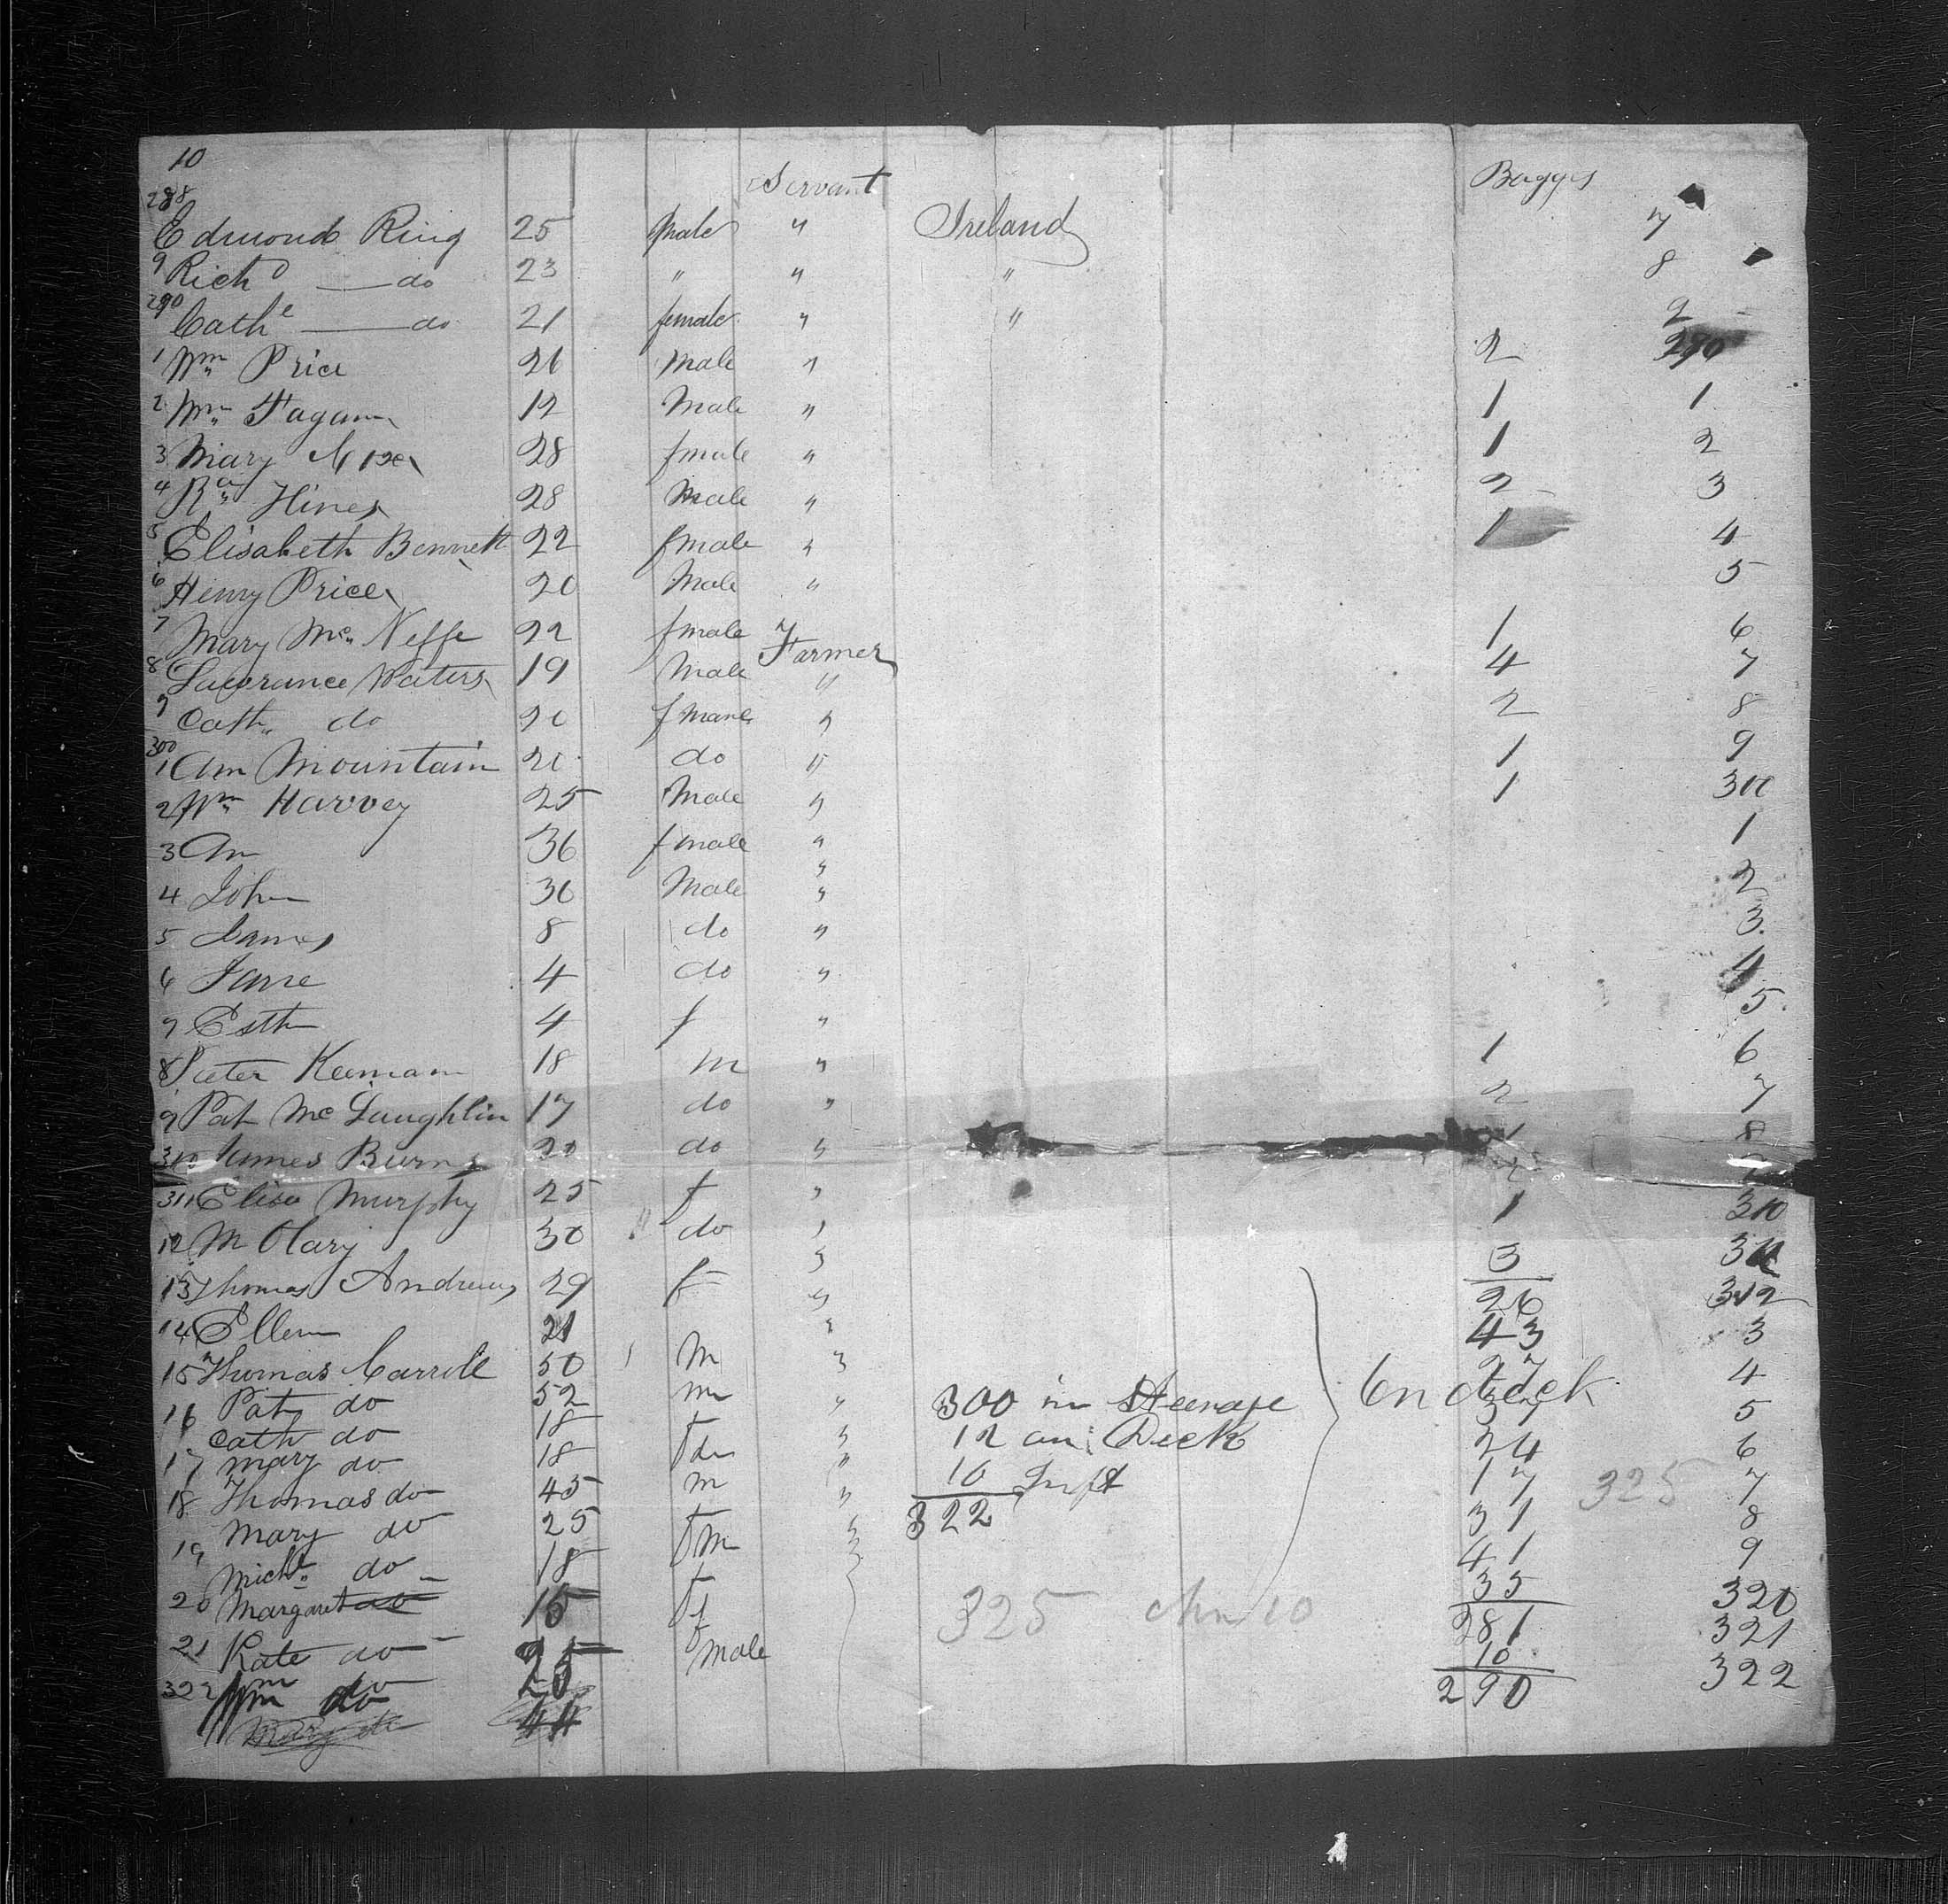 10
Servant Baggs
288
Edmond Ring 25 male " Ireland 7
9 Richd — do 23 " " " 8
290 Cathe — do 21 female " " 9
1 Wm Price 26 Male " 2 290
2 Wm Fagan 12 Male " 1 1
3 Mary 28 fmale " 1 2
4 Hines 28 Male " 2 3
5 Elisabeth Bennett 22 fmale " 1 4
6 Henry Price 20 Male " 5
7 Mary Mc Neffe 22 fmale " 1 6
8 Lawrance Waters 19 Male Farmer 4 7
9 Cath do 20 fmale " 2 8
300
1 Ann Mountain 20 do " 1 9
2 Wm Harvey 25 Male " 1 300
3 An 36 fmale " 1
4 John 30 Male " 2
5 James 8 do " 3
6 Jane 4 do " 4
7 Esth 4 f " 5
8 Peter Keernan 18 m " 1 6
9 Pat Mc Laughlin 17 do " 2 7
310 James Burns 20 do " 8
311 Elisa Murphy 25 f " 2
12 M Olary 30 do " 1 310
13 Thomas Andrews 29 f " 3 311
14 Ellen 21 " 26 312
15 Thomas Carroll 50 m " 43 3
16 Pat do 52 m " 300 in Steerage 27 4
Cath do 18 " 12 on Deck On deck 37 5
17 Mary do 18 f do " 10 Inft 24 6
18 Thomas do 45 m " 322 17 325 7
19 Mary do 25 f m " 31 8
Michl do 18 f 41 9
20 Margaret do 15 f 325 10 35 320
21 Kate do 25 male 281 321
322 Wm do 10 322
Wm do 290
Mary do 44